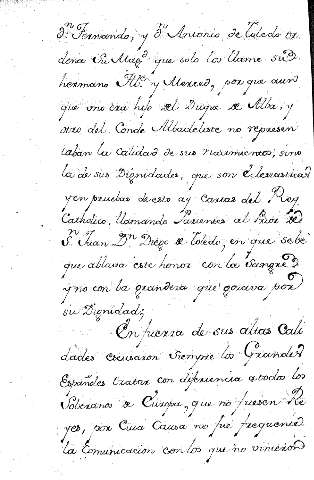 Dⁿ Fernando, y Dⁿ Antonio de Toledo or
dena Su Magᵈ que solo los llame su
hermano Illᵉ y Merced, porque aun
que uno era hijo del Duque de Alba, y
otro del Conde Albadeliste no represen
taban la calidad de sus nacimientos, sino
la de sus Dignidades, que son Eclesiasticas
y en pruebas de esto ay Cartas del Rey
Catholico, llamando Parientes al Prior de
Sⁿ Juan Dⁿ Diego de Toledo, en que se bé
que ablava este honor con la Sangre
y no con la grandeza que gozava por
su Dignidad;
En fuerza de sus altas Cali
dades escusaron siempre los Grandes
Españoles tratar con diferencia a todos los
Soberanos de Europa, que no fuesen Re
yes, por Cuia Causa no fue frequente
la Comunicacion con los que no vinieron